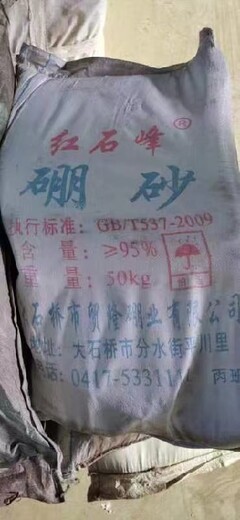 红石峰®
硼砂
执行标准：GB/T537-2009
含量：≥95%
重量：50kg
石桥市贸隆硼业有限公司
址：大石桥市分水街平川里
话：0417-5331
丙班